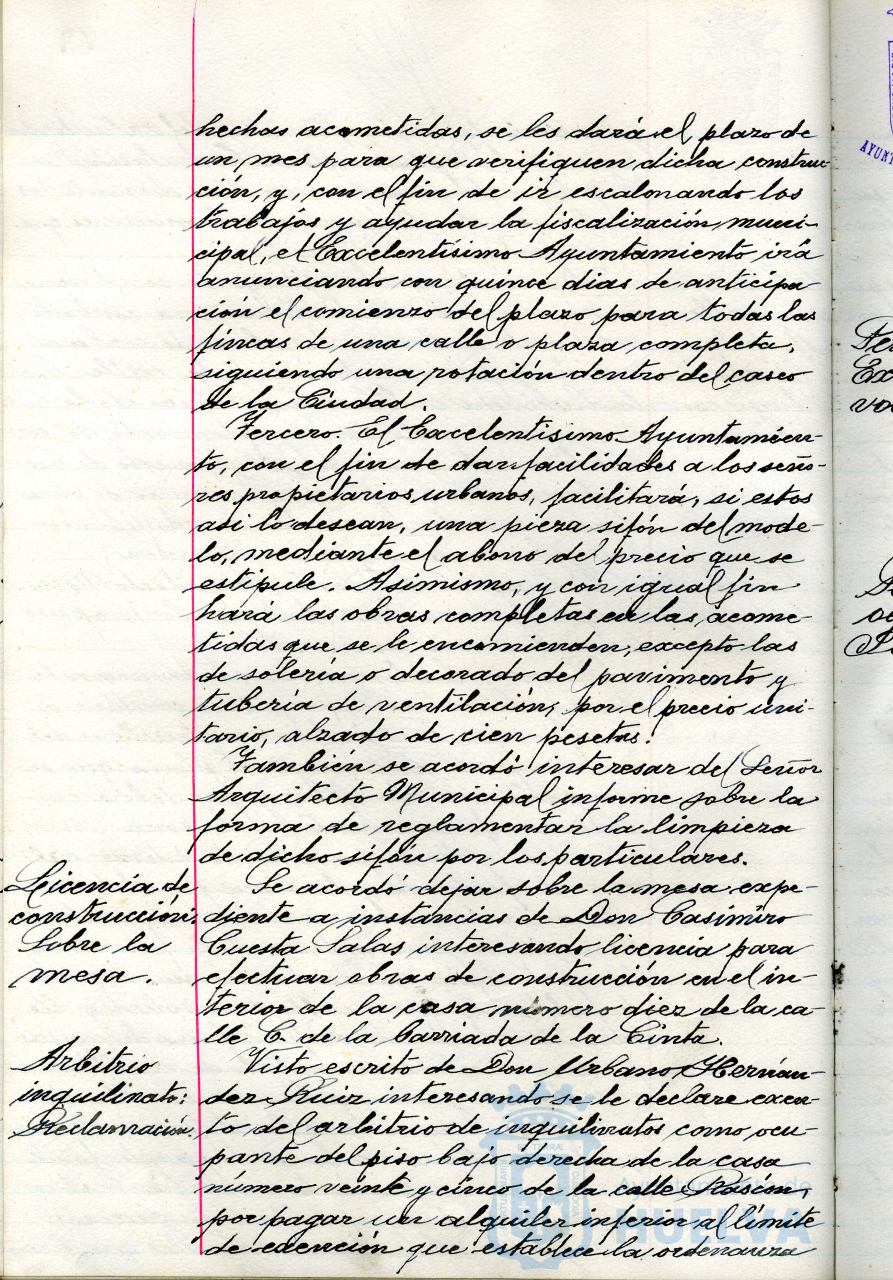 hechas acometidas, se les dará el plazo de
un mes para que verifiquen dicha construc-
ción, y, con el fin de ir escalonando los
trabajos y ayudar la fiscalización muni-
cipal, el Excelentísimo Ayuntamiento irá
anunciando con quince dias de anticipa
ción el comienzo del plazo para todas las
fincas de una calle o plaza completa,
siguiendo una rotación dentro del casco
de la Ciudad.
Tercero. El Excelentisimo Ayuntamien-
to, con el fin de dar facilidades a los seño-
res propietarios urbanos, facilitará, si estos
asi lo desean, una pieza sifón del mode-
lo, mediante el abono del precio que se
estipule. Asimismo, y con igual fin
hará las obras completas en las acome-
tidas que se le encomienden, excepto las
de solería o decorado del pavimento y
tubería de ventilación, por el precio uni-
tario, alzado de cien pesetas.
También se acordó interesar del Señor
Arquitecto Municipal informe sobre la
forma de reglamentar la limpieza
de dicho sifón por los particulares.
Licencia de
construcción:
Sobre la
mesa.
Se acordó dejar sobre la mesa expe-
diente a instancias de Don Casimiro
Cuesta Salas interesando licencia para
efectuar obras de construcción en el in-
terior de la casa número diez de la ca-
lle C. de la Barriada de la Cinta.
Arbitrio
inquilinato:
Reclamación.
Visto escrito de Don Urbano Hernán-
dez Ruiz interesando se le declare exen-
to del arbitrio de inquilinatos como ocu-
pante del piso bajo derecha de la casa
número veinte y cinco de la calle Rascón,
por pagar un alquiler inferior al límite
de exención que establece la ordenanza
Ayuntamiento de
HUELVA